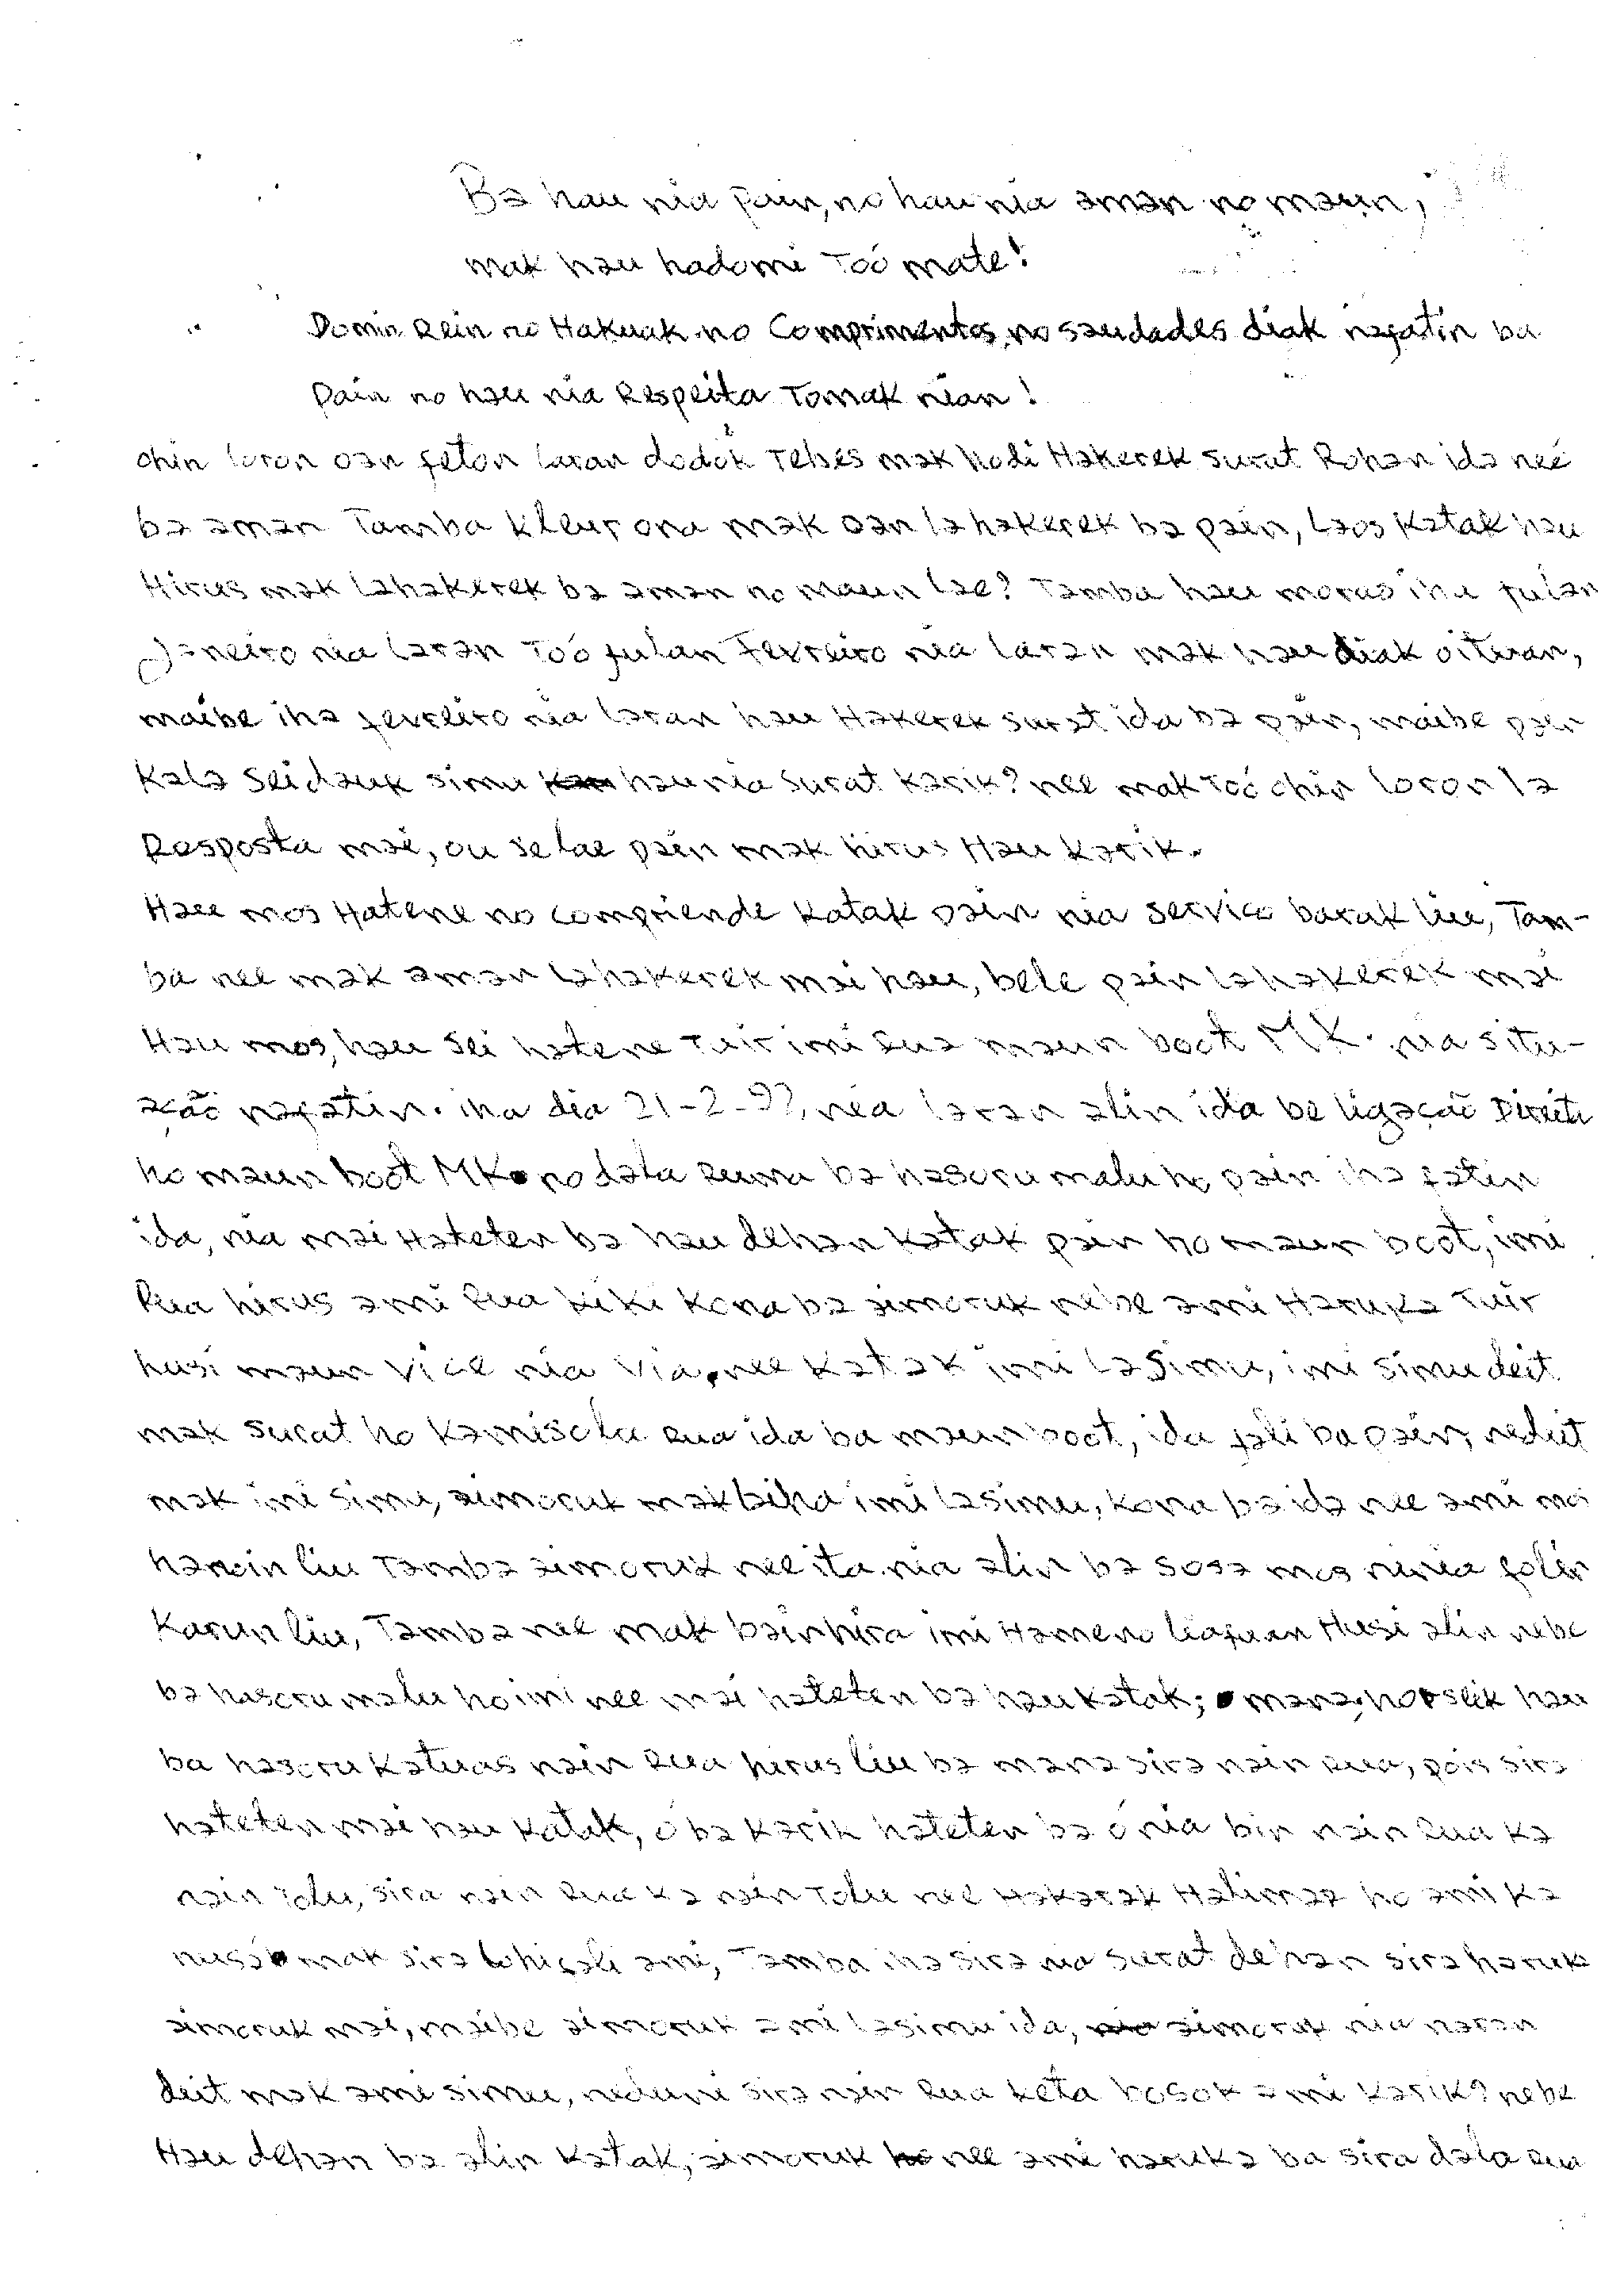 Ba hau nia pain, no hau nia aman no maun,
mak hau hadomi Too mate!
Domin Rein no Hakuak no Comprimentos, no saudades diak nafatin ba
Pain no hau nia Respeita Tomak nian!
ohin loron oan feton laran dodok Tebes mak hodi Hakerek surat Rohan ida neé
ba aman Tamba kleur ona mak oan lahakerek ba pain, laos katak hau
Hirus mak lahakerek ba aman no maun lae? Tamba hau moras iha fulan
Janeiro nia laran Too fulan Fevreiro nia laran mak hau diak oituan,
maibe iha fevreiro nia laran hau Hakerek surat ida ba pain, maibe pain
kala seidauk simu hau nia surat karik? nee mak Too ohin loron la
Resposta mai, ou se lae pain mak hirus Hau karik.
Hau mos Hatene no compriende katak pain nia servico barak liu, Tam-
ba nee mak aman lahakerek mai hau, bele pain lahakerek mai
Hau mos, hau sei hatene Tuir imi Rua maun boot MK. nia situ-
ação nafatin. iha dia 21-2-97, nia laran alin ida be ligação Direita
ho maun boot MK no dala Ruma ba hasoru malu ho pain iha fatin
ida, nia mai Hateten ba hau dehan katak pain ho maun boot, imi
Rua hirus ami Rua kiki kona ba aimoruk nebe ami Haruka Tuir
husi maun Vice nia Via, nee katak imi lasimu, imi simu deit
mak surat ho kamisola Rua ida ba maun boot, ida fali ba pain, nedeit
mak imi simu, aimoruk mak laiha imi lasimu, kona ba ida nee ami mos
hanoin liu Tamba aimoruk nee ita nia alin ba sosa mos ninia folin
Karun liu, Tamba nee mak bainhira imi Hameno liafuan Husi alin nebe
ba hasoru malu ho imi nee mai hateten ba hau katak; mana, horseik hau
ba hasoru katuas nain Rua hirus liu ba mana sira nain Rua, pois sira
hateten mai hau katak, ó ba karik hateten ba ó nia bin nain Rua ka
nain Tolu, sira nain Rua ka nain Tolu nee Hakarak Halimar ho ami ka
nusa mak sira lohi fali ami, Tamba iha sira nia surat dehan sira haruka
aimoruk mai, maibe aimoruk ami lasimu ida, aimoruk nia naran
deit mak ami simu, neduni sira nain Rua keta bosok ami karik? nebe
Hau dehan ba alin katak, aimoruk nee ami haruka ba sira dala Rua